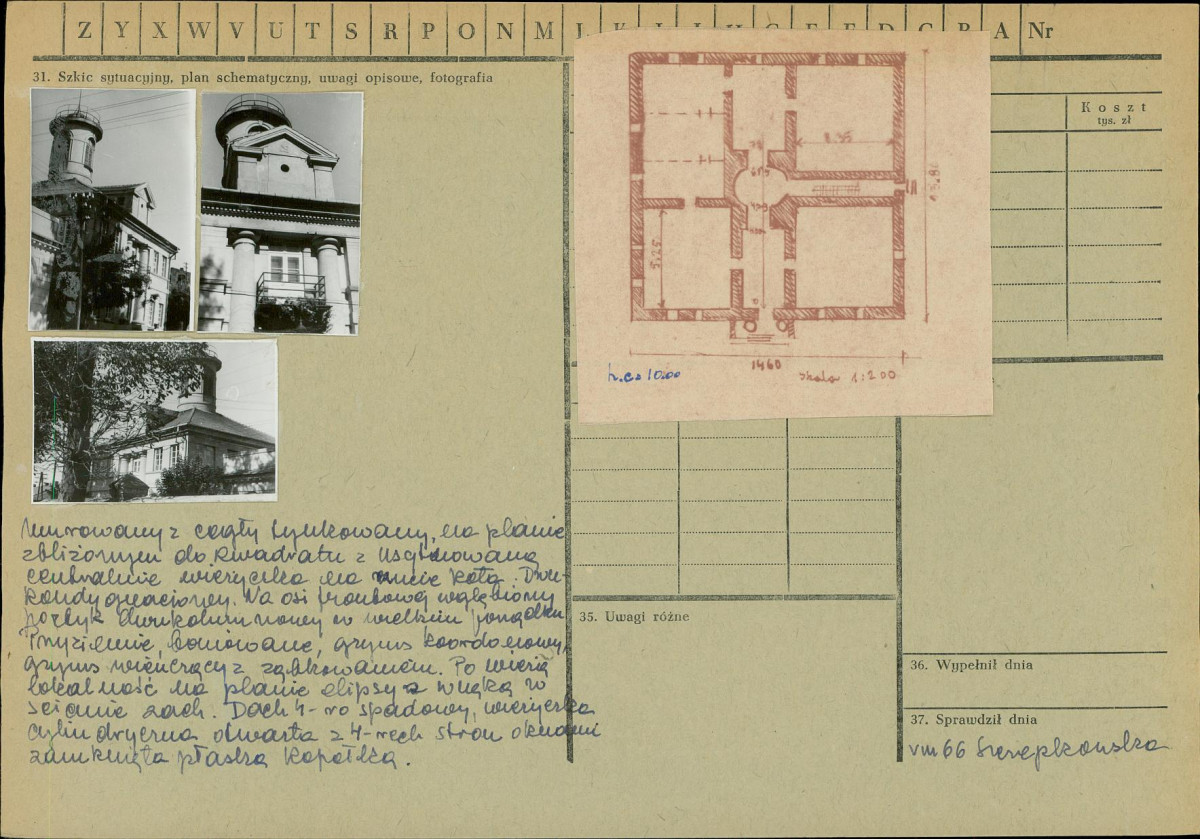 Z Y X W V U T S R P O N M Ł K J I H G F E D C B A Nr
31. Szkic sytuacyjny, plan schematyczny, uwagi opisowe, fotografia
Koszt
tys. zł
8.35
5.25
1460
h. ca 10.00
skala 1:200
Murowany z cegły tynkowany, na planie
zbliżonym do kwadratu z usytuowaną
centralnie wieżyczką na rzucie koła. Dwu-
kondygnacjowy. Na osi frontowej wgłębiony
portyk dwukolumnowy w wielkim porządku
Przyziemie boniowane, gzyms kordonowy,
gzyms wieńczący z ząbkowaniem. Po wieżą
lokalność na planie elipsy z wnęką w
ścianie zach. Dach 4-ro spadowy, wieżyczka
cylindryczna otwarta z 4-rech stron oknami
zamknięta płaską kopółką.
35. Uwagi różne
36. Wypełnił dnia
37. Sprawdził dnia
VIII 66 Szczepkowska